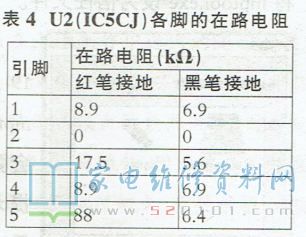 表4 U2(IC5CJ)各脚的在路电阻
引脚 在路电阻(kΩ)
红笔接地 黑笔接地
1 8.9 6.9
2 0 0
3 17.5 5.6
4 8.9 6.9
5 88 6.4
家电维修资料网
www.520101.com